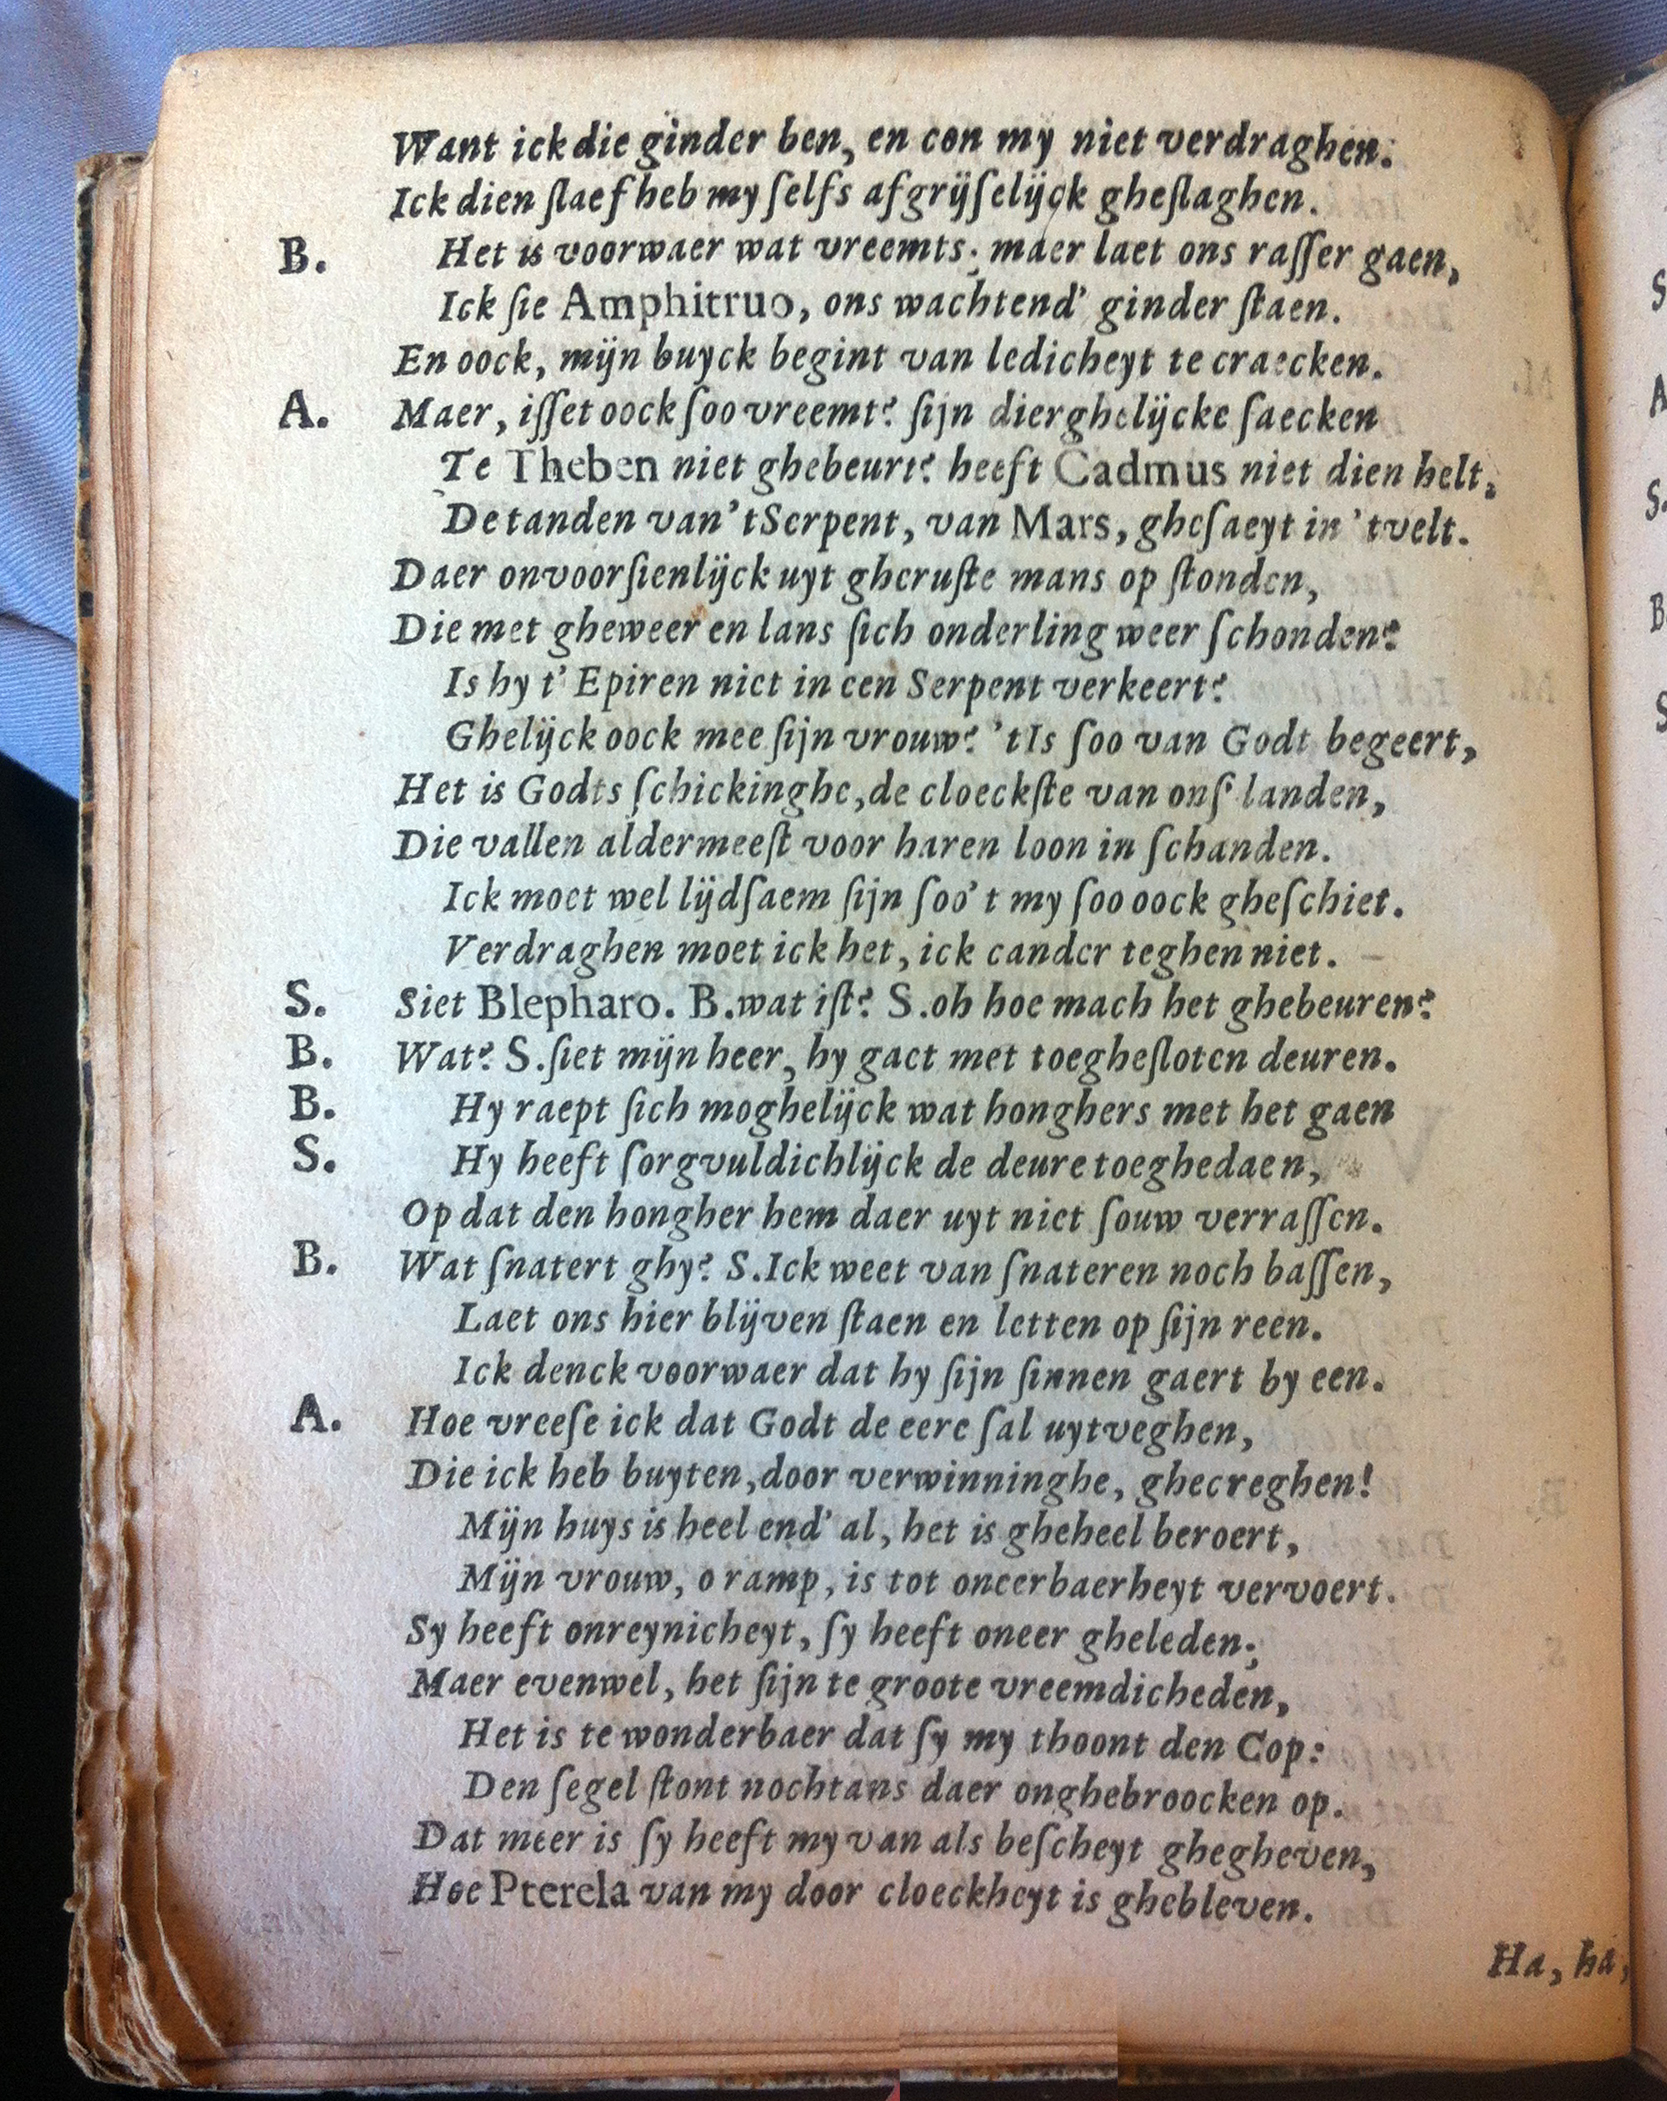 Want ick die ginder ben, en con my niet verdraghen.
Ick dien ſlaef heb my ſelfs afgrijſelijck gheſlaghen.
B. Het is voorwaer wat vreemts; maer laet ons raſſer gaen,
Ick ſie Amphitruo, ons wachtend' ginder ſtaen.
En oock, mijn buyck begint van ledicheyt te craecken.
A. Maer, iſſet oock ſoo vreemt? ſijn dierghelijcke ſaecken
Te Theben niet ghebeurt? heeft Cadmus niet dien helt,
De tanden van 't Serpent, van Mars, gheſaeyt in 't velt.
Daer onvoorſienlijck uyt gheruſte mans op ſtonden,
Die met gheweer en lans ſich onderling weer ſchonden?
Is hy t' Epiren niet in een Serpent verkeert?
Ghelijck oock mee ſijn vrouw? 't Is ſoo van Godt begeert,
Het is Godts ſchickinghe, de cloeckſte van onſ' landen,
Die vallen aldermeeſt voor haren loon in ſchanden.
Ick moet wel lijdſaem ſijn ſoo 't my ſoo oock gheſchiet.
Verdraghen moet ick het, ick cander teghen niet.
S. Siet Blepharo. B. wat iſt? S. oh hoe mach het ghebeuren?
B. Wat? S. ſiet mijn heer, hy gaet met toegheſloten deuren.
B. Hy raept ſich moghelijck wat honghers met het gaen
S. Hy heeft ſorgvuldichlijck de deure toeghedaen,
Op dat den hongher hem daer uyt niet ſouw verraſſen.
B. Wat ſnatert ghy? S. Ick weet van ſnateren noch baſſen,
Laet ons hier blijven ſtaen en letten op ſijn reen.
Ick denck voorwaer dat hy ſijn ſinnen gaert by een.
A. Hoe vreeſe ick dat Godt de eere ſal uytveghen,
Die ick heb buyten, door verwinninghe, ghecreghen!
Mijn huys is heel end' al, het is gheheel beroert,
Mijn vrouw, o ramp, is tot oneerbaerheyt vervoert.
Sy heeft onreynicheyt, ſy heeft oneer gheleden;
Maer evenwel, het ſijn te groote vreemdicheden,
Het is te wonderbaer dat ſy my thoont den Cop:
Den ſegel ſtont nochtans daer onghebroocken op.
Dat meer is ſy heeft my van als beſcheyt ghegheven,
Hoe Pterela van my door cloeckheyt is ghebleven.
Ha, ha,